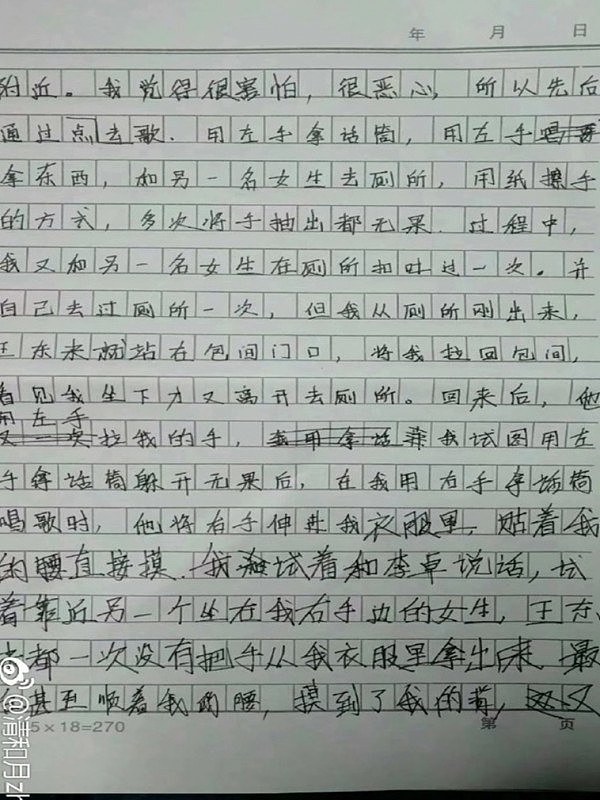 年 月 日
附近。我觉得很害怕，很恶心，所以先后
通过点去歌、用左手拿话筒，用左手
拿东西，和另一名女生去厕所，用纸擦手
的方式，多次将手抽出都无果。过程中，
我又和另一名女生在厕所扣吐过一次。并
自己去过厕所一次，但我从厕所刚出来，
王东来就站在包间门口，将我拉回包间，
看见我坐下才又离开去厕所。回来后，他
用左手
又一次拉我的手，我试图用左
手拿话筒躲开无果后，在我用右手拿话筒
唱歌时，他将右手伸进我衣服里，贴着我
的腰直接摸。我试着和李卓说话，试
着靠近另一个坐在我右手边的女生，王东
来都一次没有把手从我衣服里拿出来，最
后甚至顺着我的腰，摸到了我的背，又
15×18=270 第 页
@清和月zh